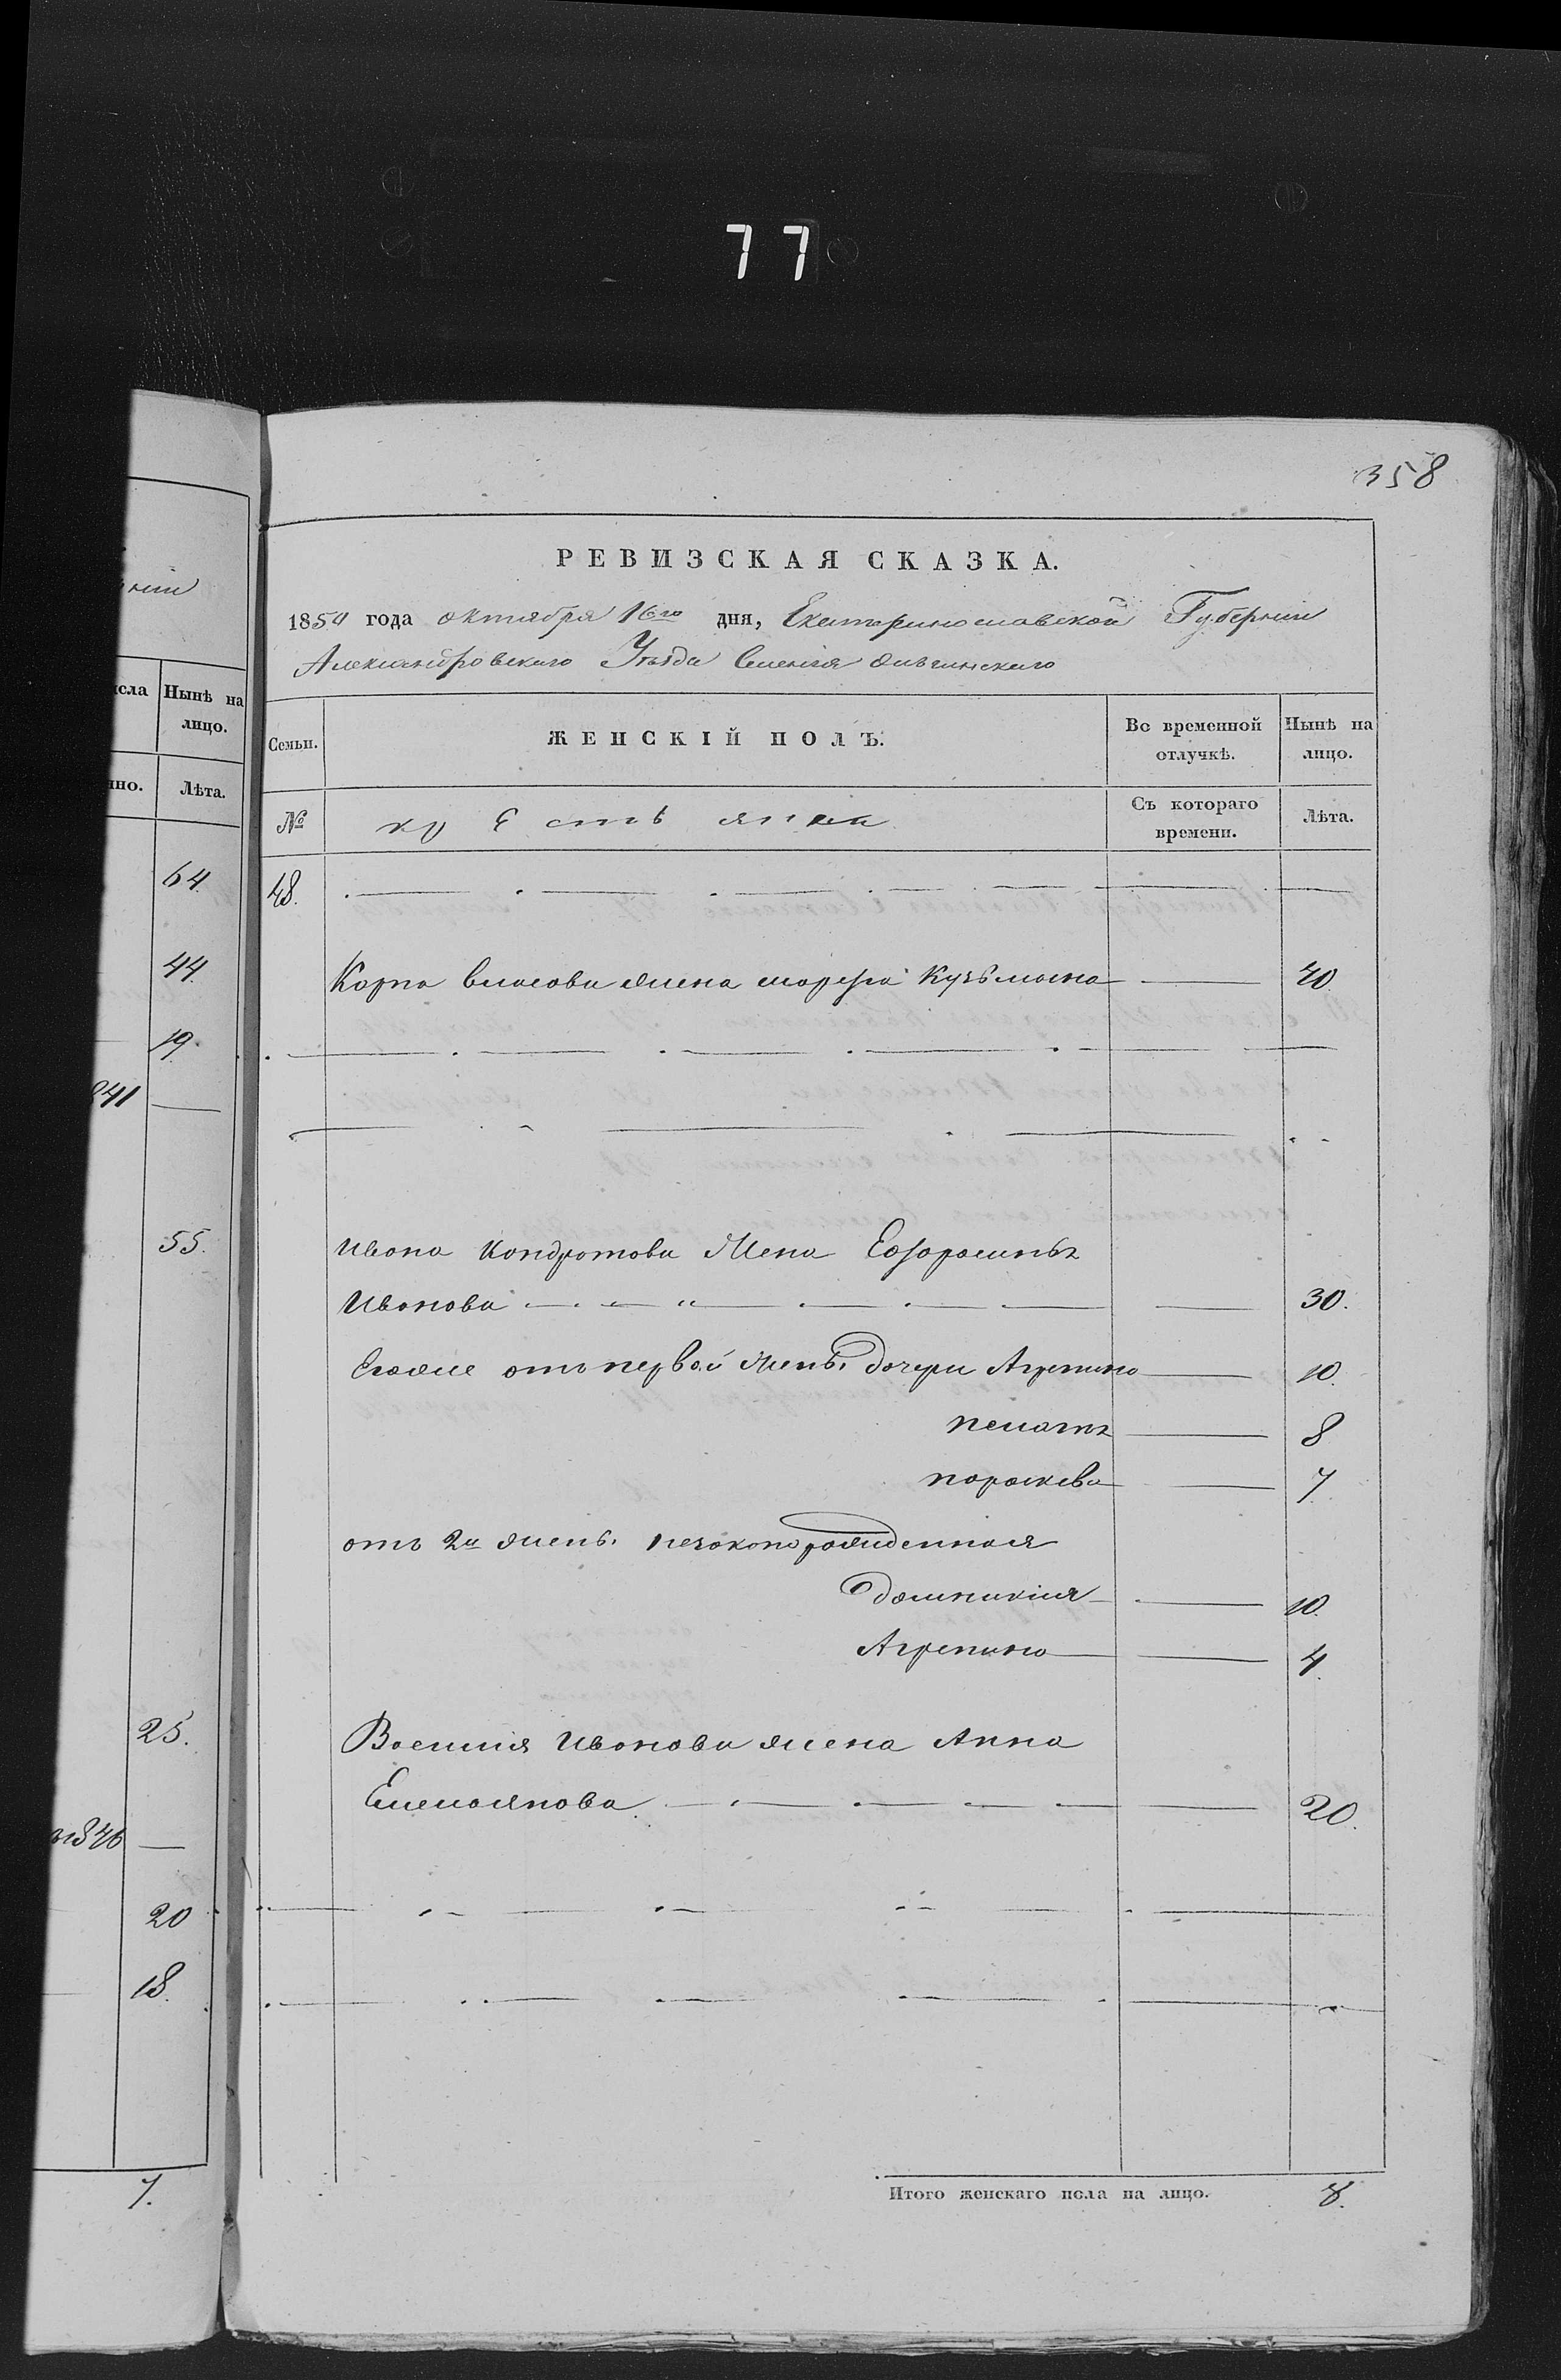 77
358
РЕВИЗСКАЯ СКАЗКА.
1854 года октября 16го дня, Екатеринославской Губернии
Александровского Уезда Селения
нии
сла Нынѣ на лицо.
но. Лѣта.
64.
44.
19.
841 —
55.
25.
1846 —
20
18.
7.
Семьи. ЖЕНСКІЙ ПОЛЪ. Во временной отлучкѣ. Нынѣ на лицо.
№ крестьянки Съ котораго времени. Лѣта.
48.
Карпа Власова жена Марфа Кузьмина — 40
Ивана Кондратова Жена Ефоросинья
Иванова — 30.
Егоже отъ первой жены дочери Агрепина — 10.
Пелагия — 8
Параскева — 7.
отъ 2й жены незаконорожденная
Домникия — 10.
Агрепина — 4.
Василия Иванова жена Анна
Емельянова — 20.
Итого женскаго пола на лицо. 8.